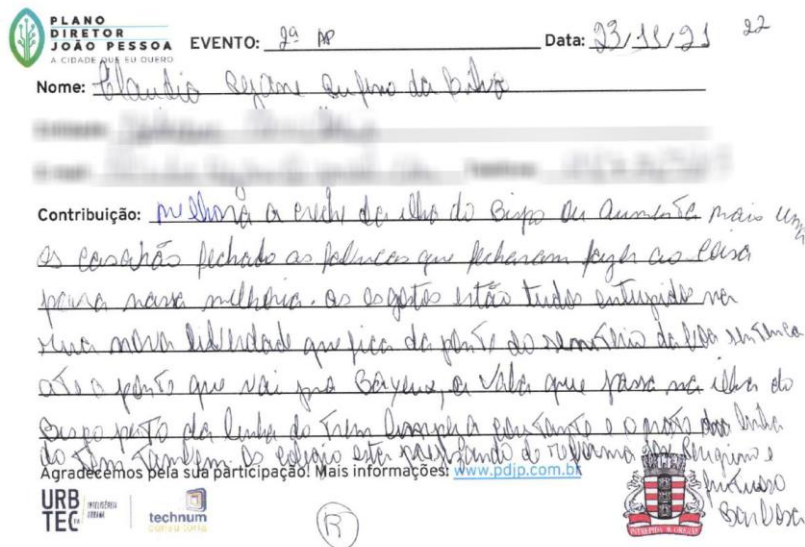 PLANO
DIRETOR
JOÃO PESSOA
A CIDADE QUE EU QUERO
EVENTO: 2ª AP Data: 23/11/21 22
Nome: Claudia Rejane Rufino da Silva
Contribuição: melhorá a creche da ilha do Bispo ou aumenta mais um
os casarão fechado as fabricas que fecharam fazer as coisa
para nossa melhoria. os esgotos estão tudos entupido na
rua nova liberdade que fica da ponte do da boa sentença
até a ponte que vai pra Bayeux, a vala que passa na ilha do
Bispo perto da linha do Trem limpeza e o mato da linha
do Trem Tambem. Os colegio esta precisando de reforma
Agradecemos pela sua participação! Mais informações: www.pdjp.com.br
Barbosa
URB
TEC
INTELIGÊNCIA
URBANA
technum
consultoria
R